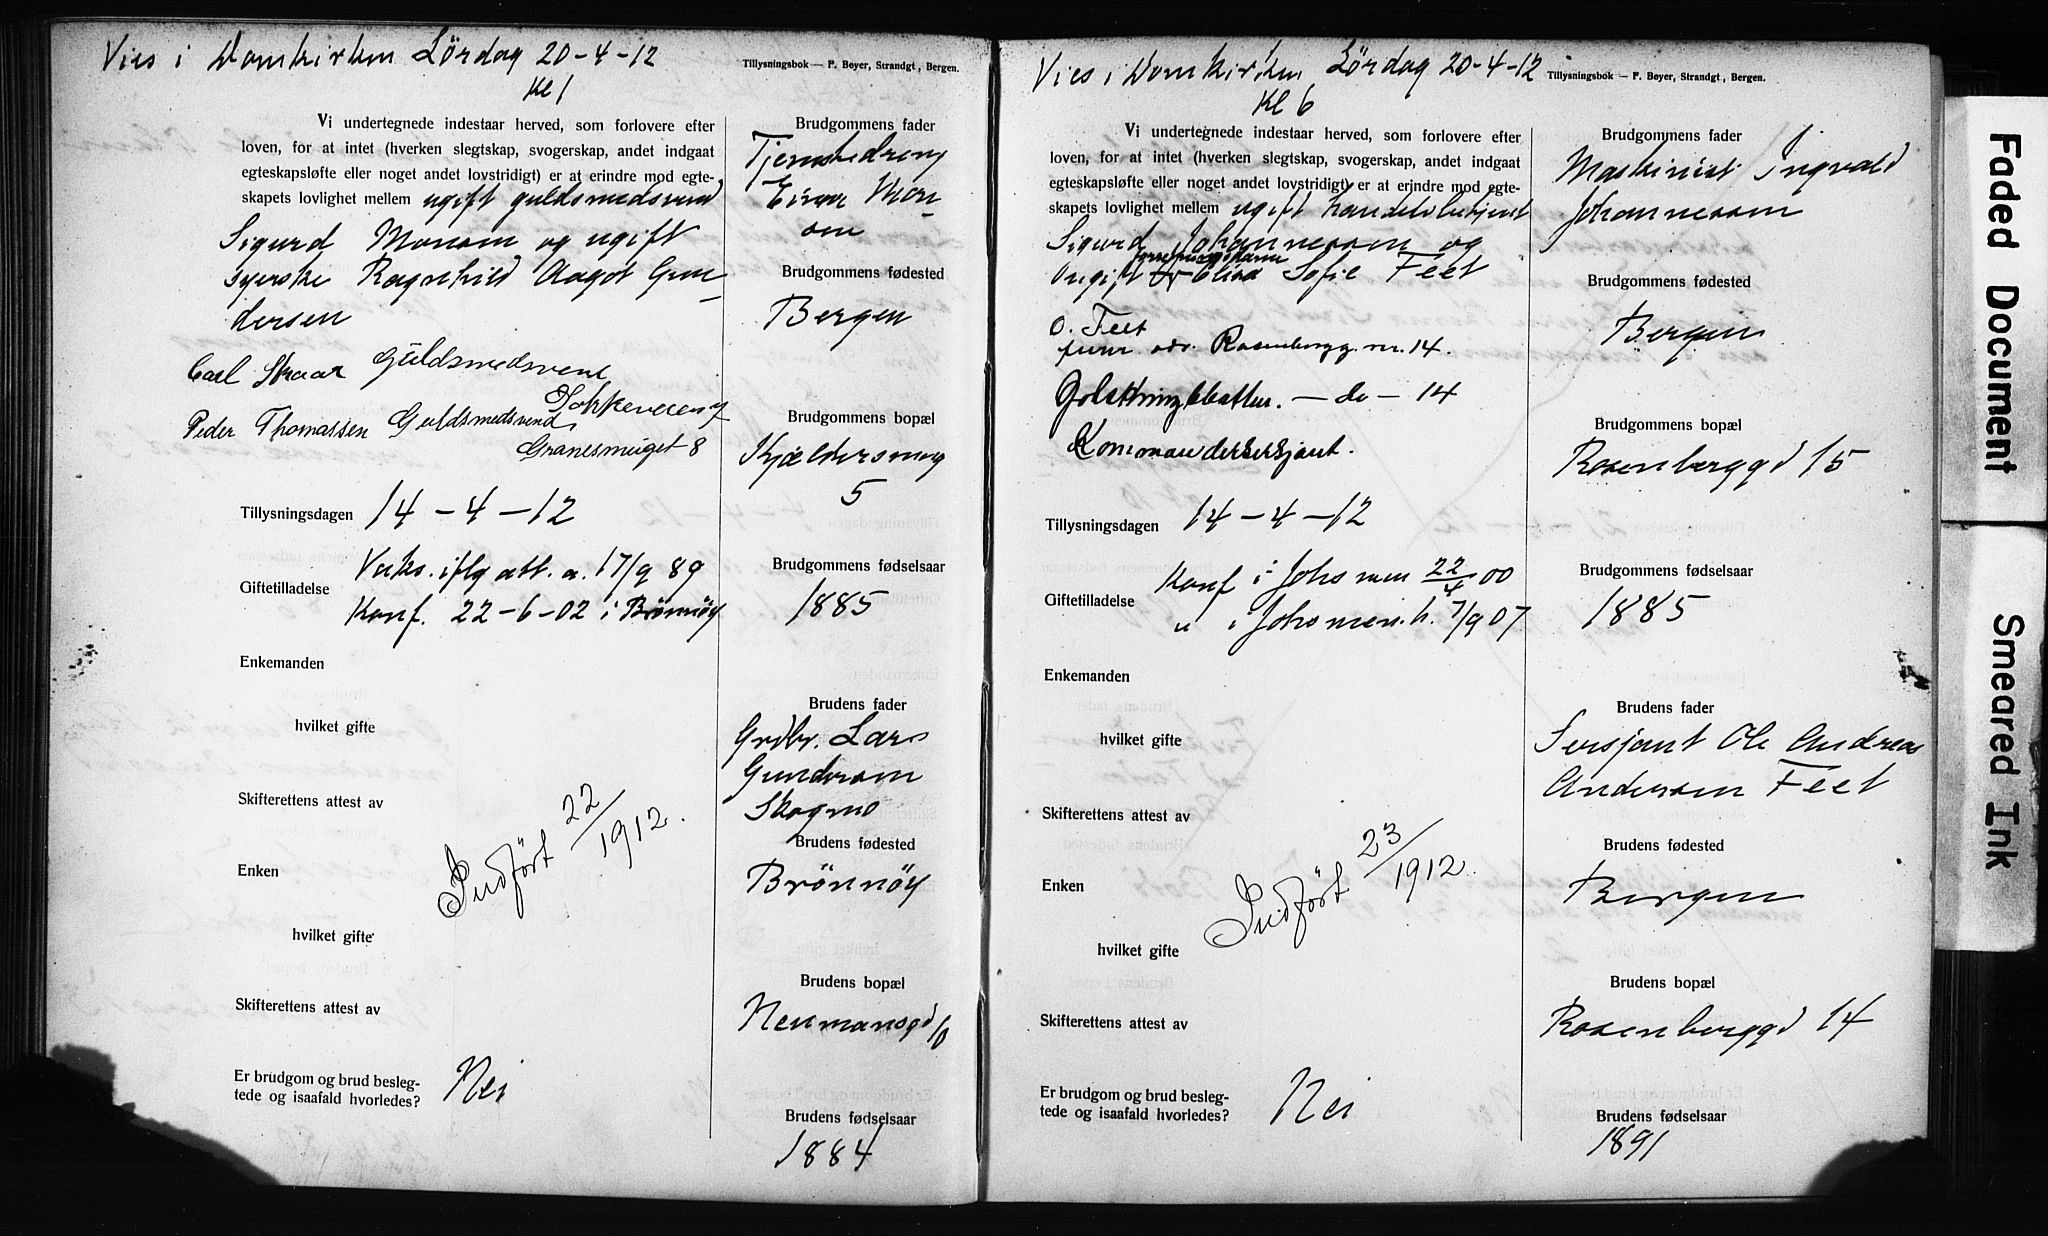 Vies i Domkirken Lördag 20-4-12
Kl 1
Tillysningsbok — F. Beyer, Strandgt, Bergen.
Vi undertegnede indestaar herved, som forlovere efter
loven, for at intet (hverken slegtskap, svogerskap, andet indgaat
egteskapsløfte eller noget andet lovstridigt) er at erindre mod egte-
skapets lovlighet mellem ugift guldsmedsvend
Sigurd Monsom og ugift
syerske Ragnhild Aagot Gun
dersen
Carl Straar Guldsmedsvend
Peder Thomassen Guldsmedsvend
Granesmuget 8
Tillysningsdagen 14-4-12
Giftetilladelse
Vaks. iflg att. a. 17/9 89
Konf. 22-6-02 i Brönnöy
Enkemanden
hvilket gifte
Skifterettens attest av
Indfört 22/1912.
Enken
hvilket gifte
Skifterettens attest av
Er brudgom og brud besleg-
tede og isaafald hvorledes? Nei
Brudgommens fader
Einar Mon
om
Brudgommens fødested
Bergen
Brudgommens bopæl
Kjældersmug
5
Brudgommens fødselsaar
1885
Brudens fader
Grdbr. Lars
Gundersom
Skogmo
Brudens fødested
Brönnöy
Brudens bopæl
Neumansgd 10
Brudens fødselsaar
1884
Vies i Domkirken Lördag 20-4-12
Kl 6
Tillysningsbok — F. Beyer, Strandgt, Bergen.
Vi undertegnede indestaar herved, som forlovere efter
loven, for at intet (hverken slegtskap, svogerskap, andet indgaat
egteskapsløfte eller noget andet lovstridigt) er at erindre mod egte-
skapets lovlighet mellem ugift handelsbetjent
Sigurd Johannessom og
ugift Elisa Sofie Feet
O. Feet
adr. Rosenbergg. nr. 14.
— do — 14
Kommandersersjant.
Tillysningsdagen 14-4-12
Giftetilladelse
Konf i Johs men 22/4 00
u i Johs men. h. 7/9 07
Enkemanden
hvilket gifte
Skifterettens attest av
Indfört 23/1912.
Enken
hvilket gifte
Skifterettens attest av
Er brudgom og brud besleg-
tede og isaafald hvorledes? Nei
Brudgommens fader
Maskinist Ingvald
Johannessom
Brudgommens fødested
Bergen
Brudgommens bopæl
Rosenberggd 15
Brudgommens fødselsaar
1885
Brudens fader
Sersjant Ole Andreas
Andersom Feet
Brudens fødested
Bergen
Brudens bopæl
Rosenberggd 14
Brudens fødselsaar
1891
Faded Document
Smeared Ink